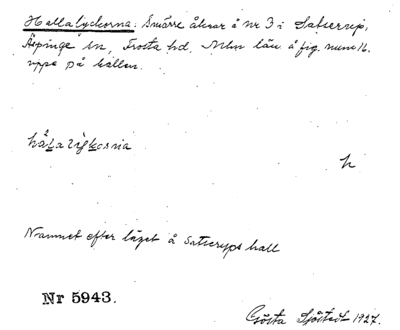 Hallalyckorna: Smärre åkrar å nr 3 i Satserup,
Äspinge sn, Frosta hd. Mlm län å fig. num 16.
uppe på hallen.
h
Namnet efter läget å Satserups hall
Nr 5943.
Gösta Sjöstedt 1927.